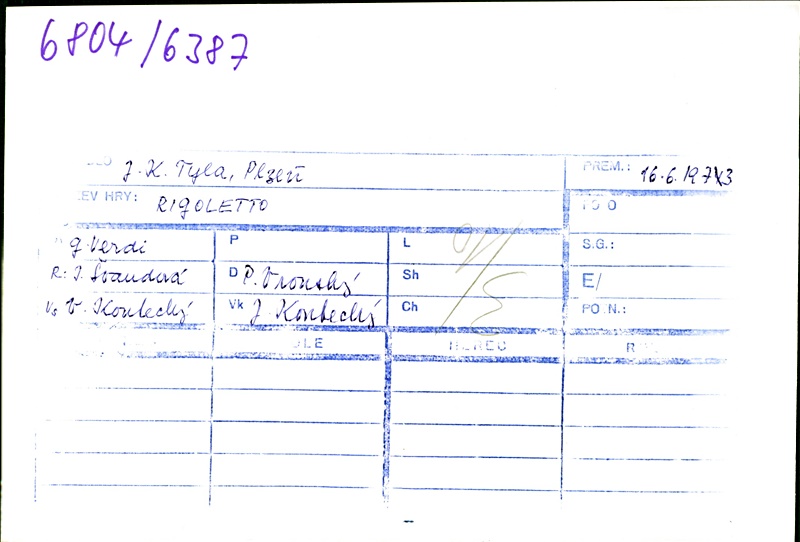 6804/6387
J. K. Tyla, Plzeň
PREM.: 16.6.1973
EV HRY: RIGOLETTO
G. Verdi P L S.G.:
R: I. Švandová D P. Vronský Sh E/
V. Koutecký Vk J. Koutecký Ch PO.N.:
HEREC